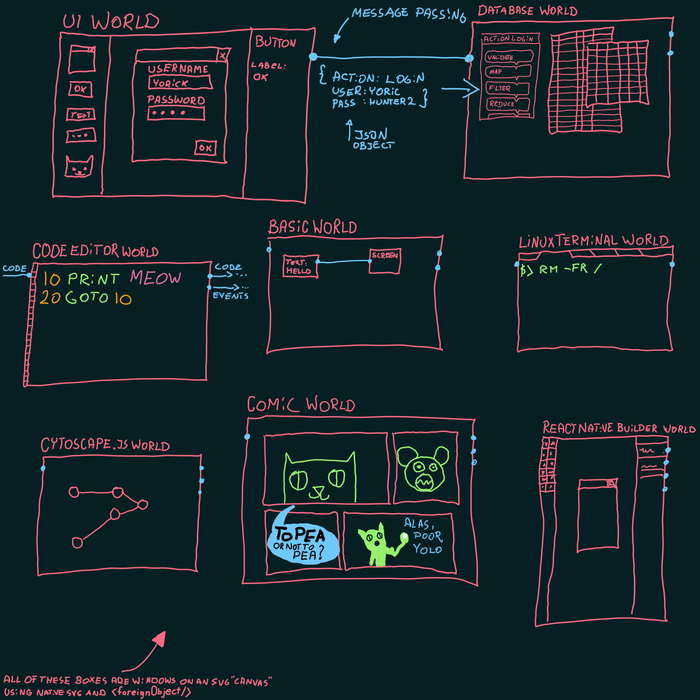 UI WORLD
MESSAGE PASSING
DATABASE WORLD
X
USERNAME
YORICK
PASSWORD
OK
OK
TEXT
BUTTON
LABEL:
OK
{ ACTION: LOGIN
USER: YORIC
PASS : HUNTER2 }
JSON
OBJECT
ACTION LOGIN
VALIDATE
MAP
FILTER
REDUCE
CODE EDITOR WORLD
CODE
10 PRINT MEOW
20 GOTO 10
CODE
...
...
EVENTS
BASIC WORLD
TEXT:
HELLO
SCREEN
LINUX TERMINAL WORLD
$> RM -FR /
CYTOSCAPE.JS WORLD
COMIC WORLD
TO PEA
OR NOT TO
PEA?
ALAS,
POOR
YOLO
REACT NATIVE BUILDER WORLD
ALL OF THESE BOXES ARE WINDOWS ON AN SVG "CANVAS"
USING NATIVE SVG AND <foreignObject/>